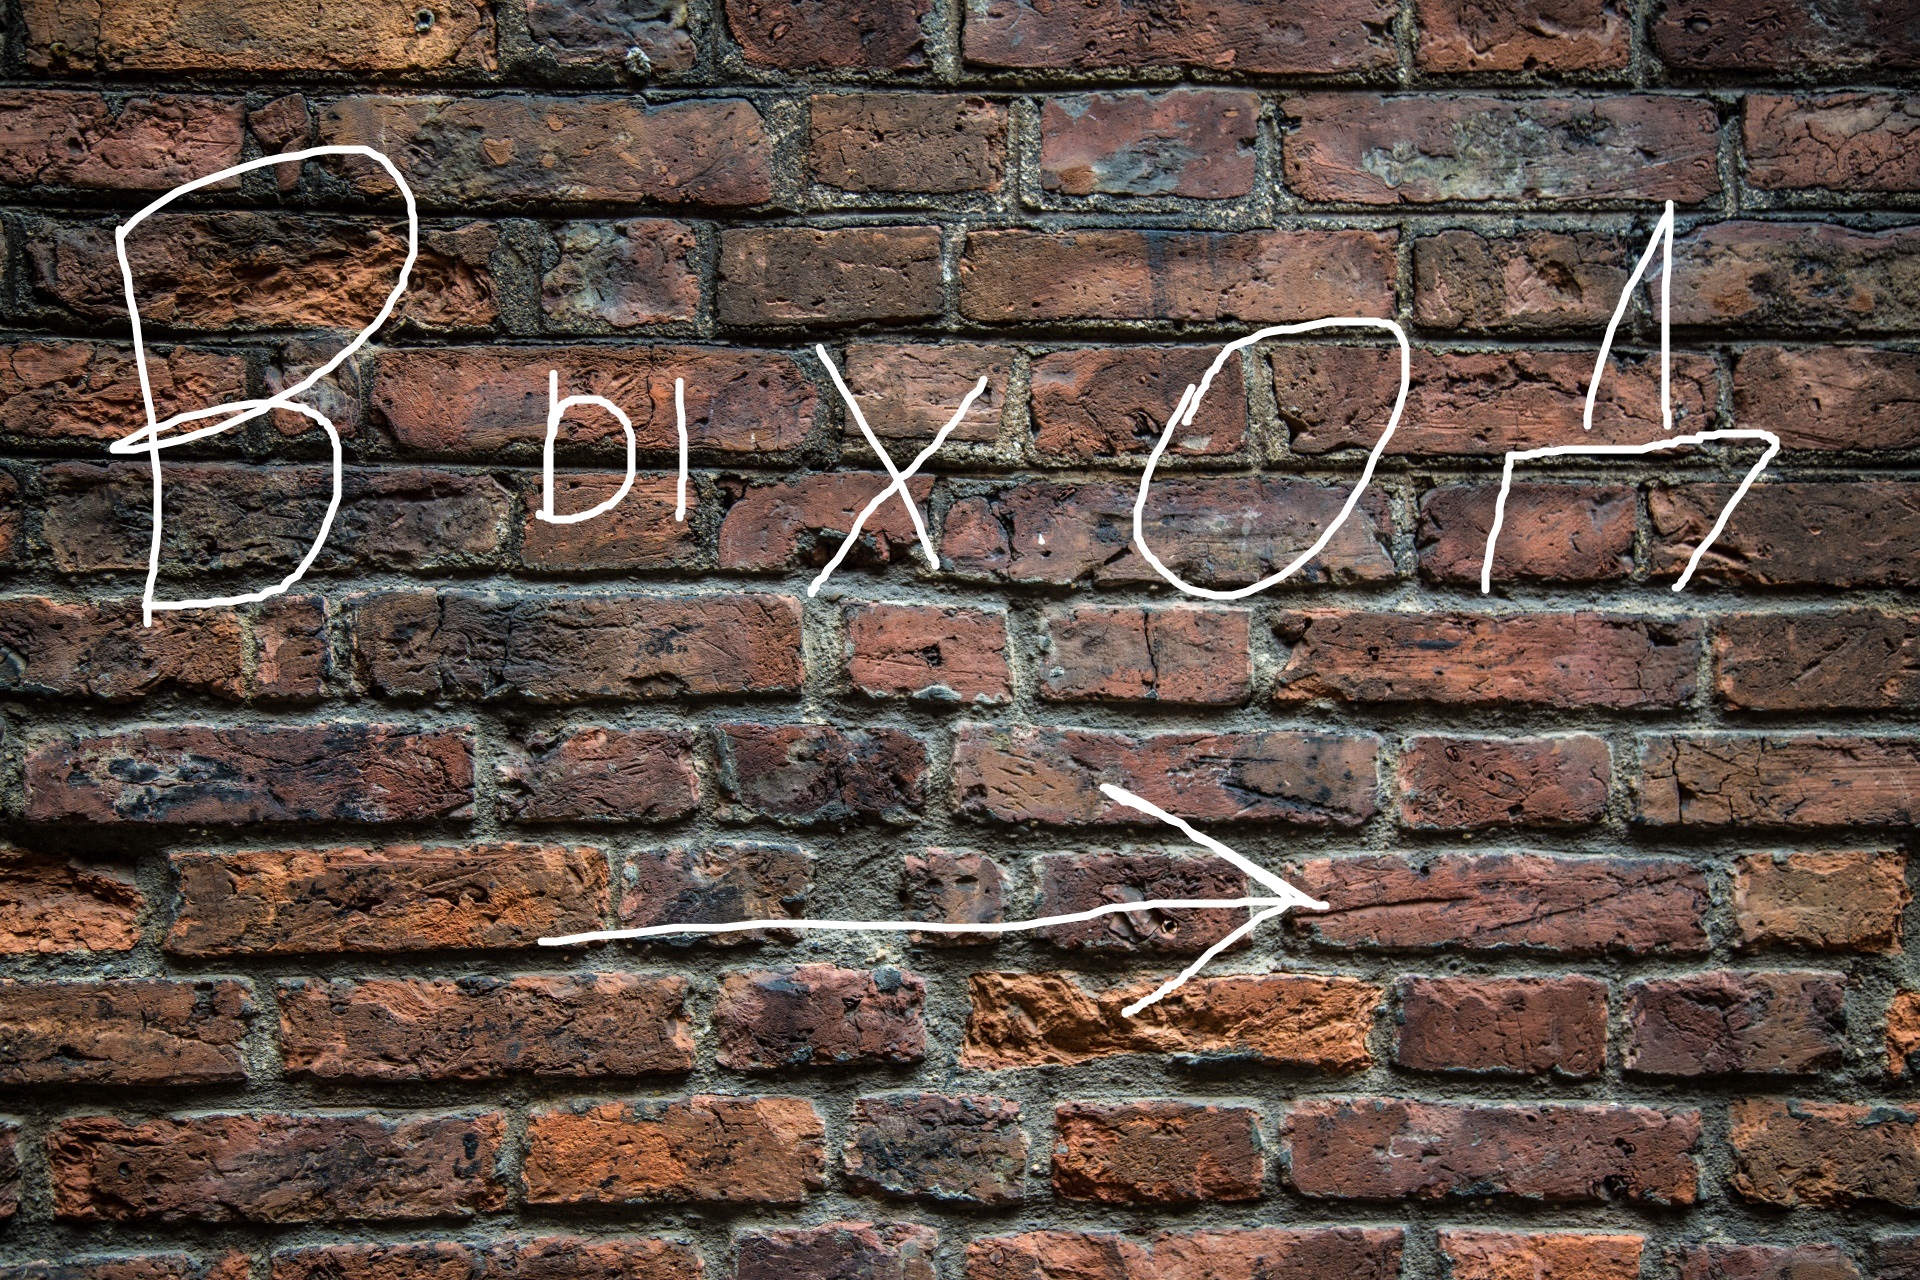 Выход